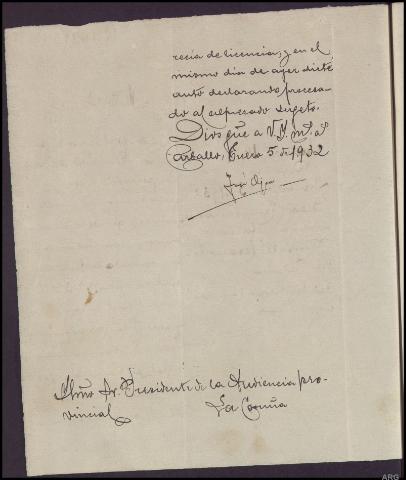 recia de licencia, y en el
mismo dia de ayer dicté
auto declarando procesa-
do al expresado sugeto.
Dios gue a V.I. ms. as.
Carballo, Enero 5 de 1932
Ilmo Sr. Presidente de la Audiencia pro-
vincial
La Coruña
ARG